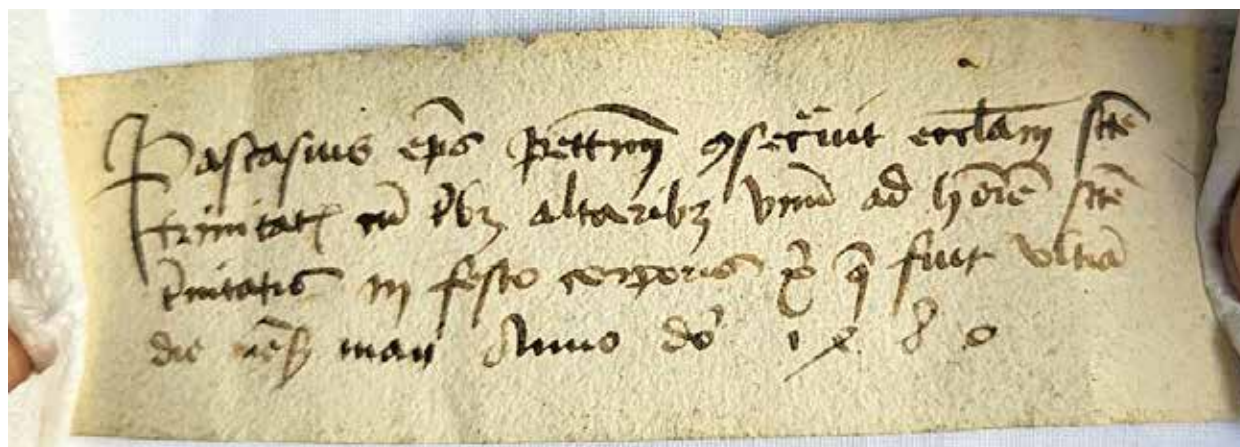 Pascasius eps̄ pettn̄ 9secᵃuit eccl̄am sct̄e
trinitatꝭ cū tⁱbꝫ altaribꝫ vnū ad hōrē sct̄e
tⁱnitatis in festo corporis xⁱ q̄ fuit vltiā
die mēsꝭ maij Anno do° 1480